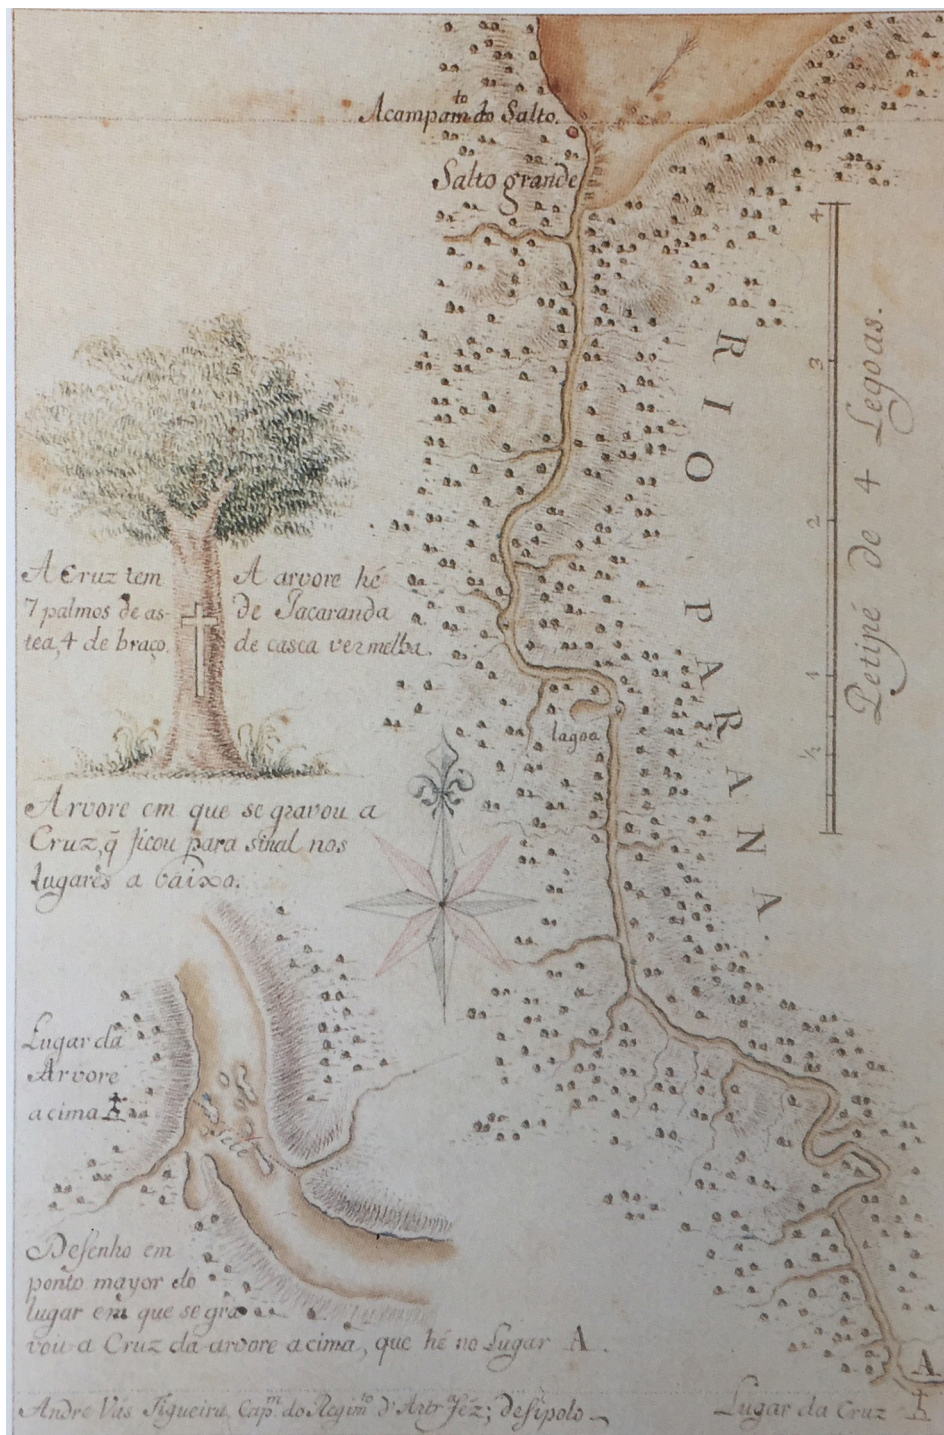 Acampam.to do Salto.
Salto grande
RIO PARANA.
4
3
2
1
½
Petipé de 4 Legoas.
A Cruz tem
7 palmos de as-
tea, 4 de braço.
A arvore hé
de Jacaranda
de casca vermelha.
lagoa
Arvore em que se gravou a
Cruz, q̃ ficou para sinal nos
lugares a baixo.
Lugar da
Arvore
acima
Desenho em
ponto mayor do
lugar em que se gra
vou a Cruz da arvore acima, que hé no Lugar A.
A
Lugar da Cruz
Andre Vas Figueira, Cap.m do Regim.to d'Artr.a